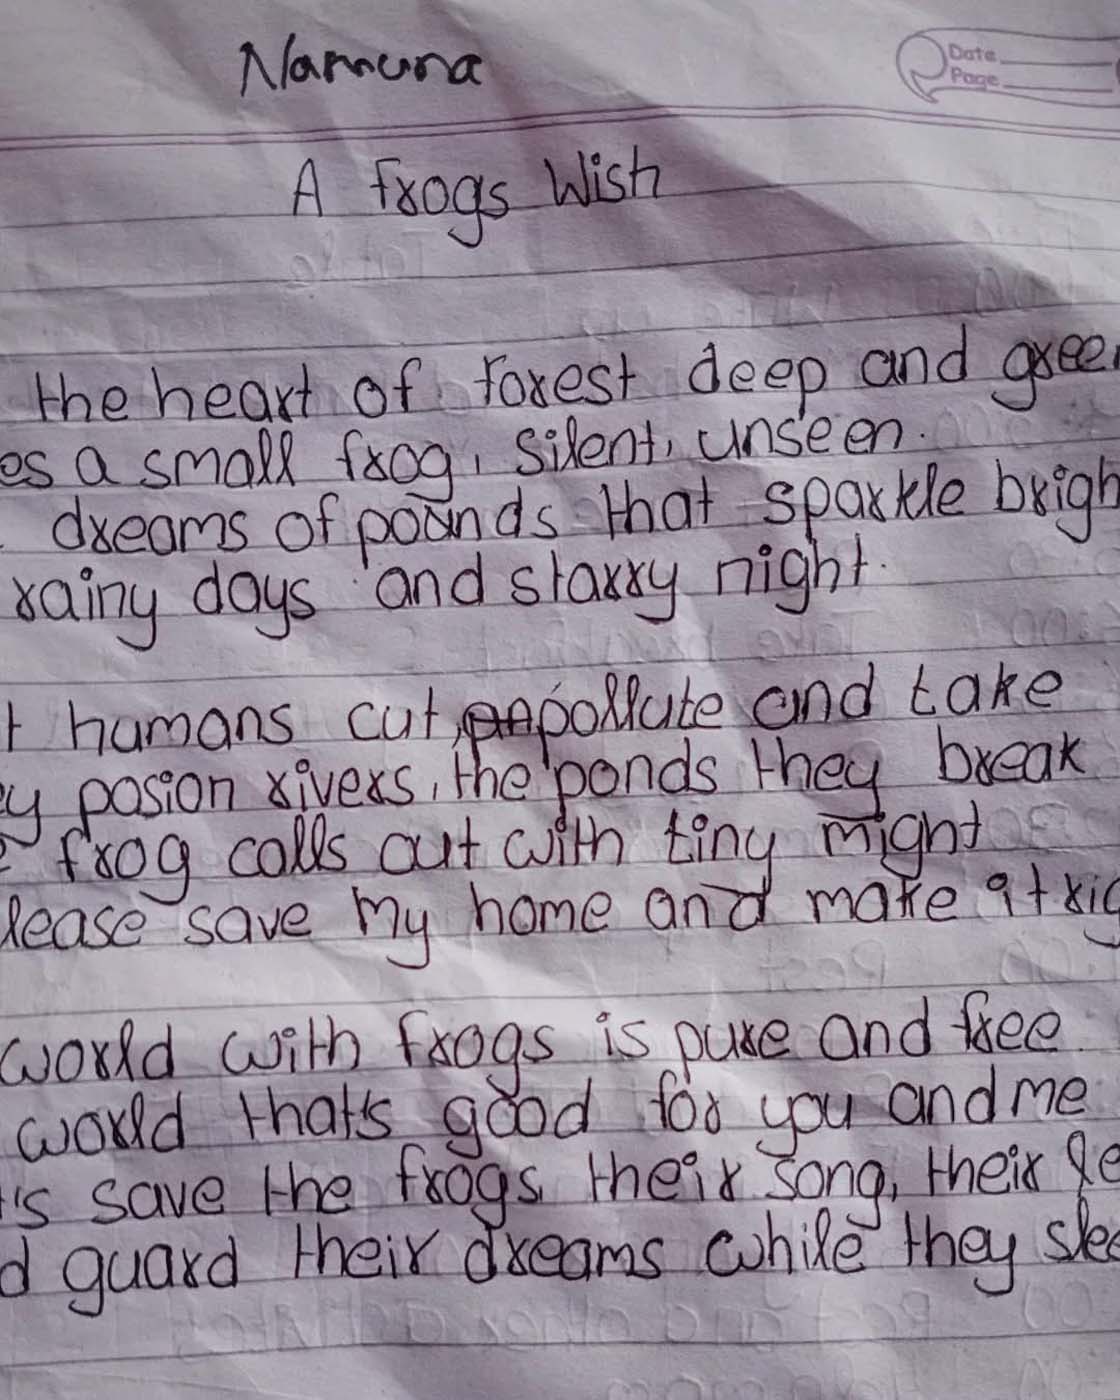 Namuna
Date
Page
A frogs Wish
the heart of forest deep and green
es a small frog, silent, unseen.
dreams of poands that sparkle brigh
rainy days and starry night.
t humans cut, pollute and take
ey posion rivers, the ponds they break
e frog calls out with tiny might
lease save my home and make it rig
world with frogs is pure and free
world that's good for you and me
t's save the frogs, their song, their le
d guard their dreams while they slee